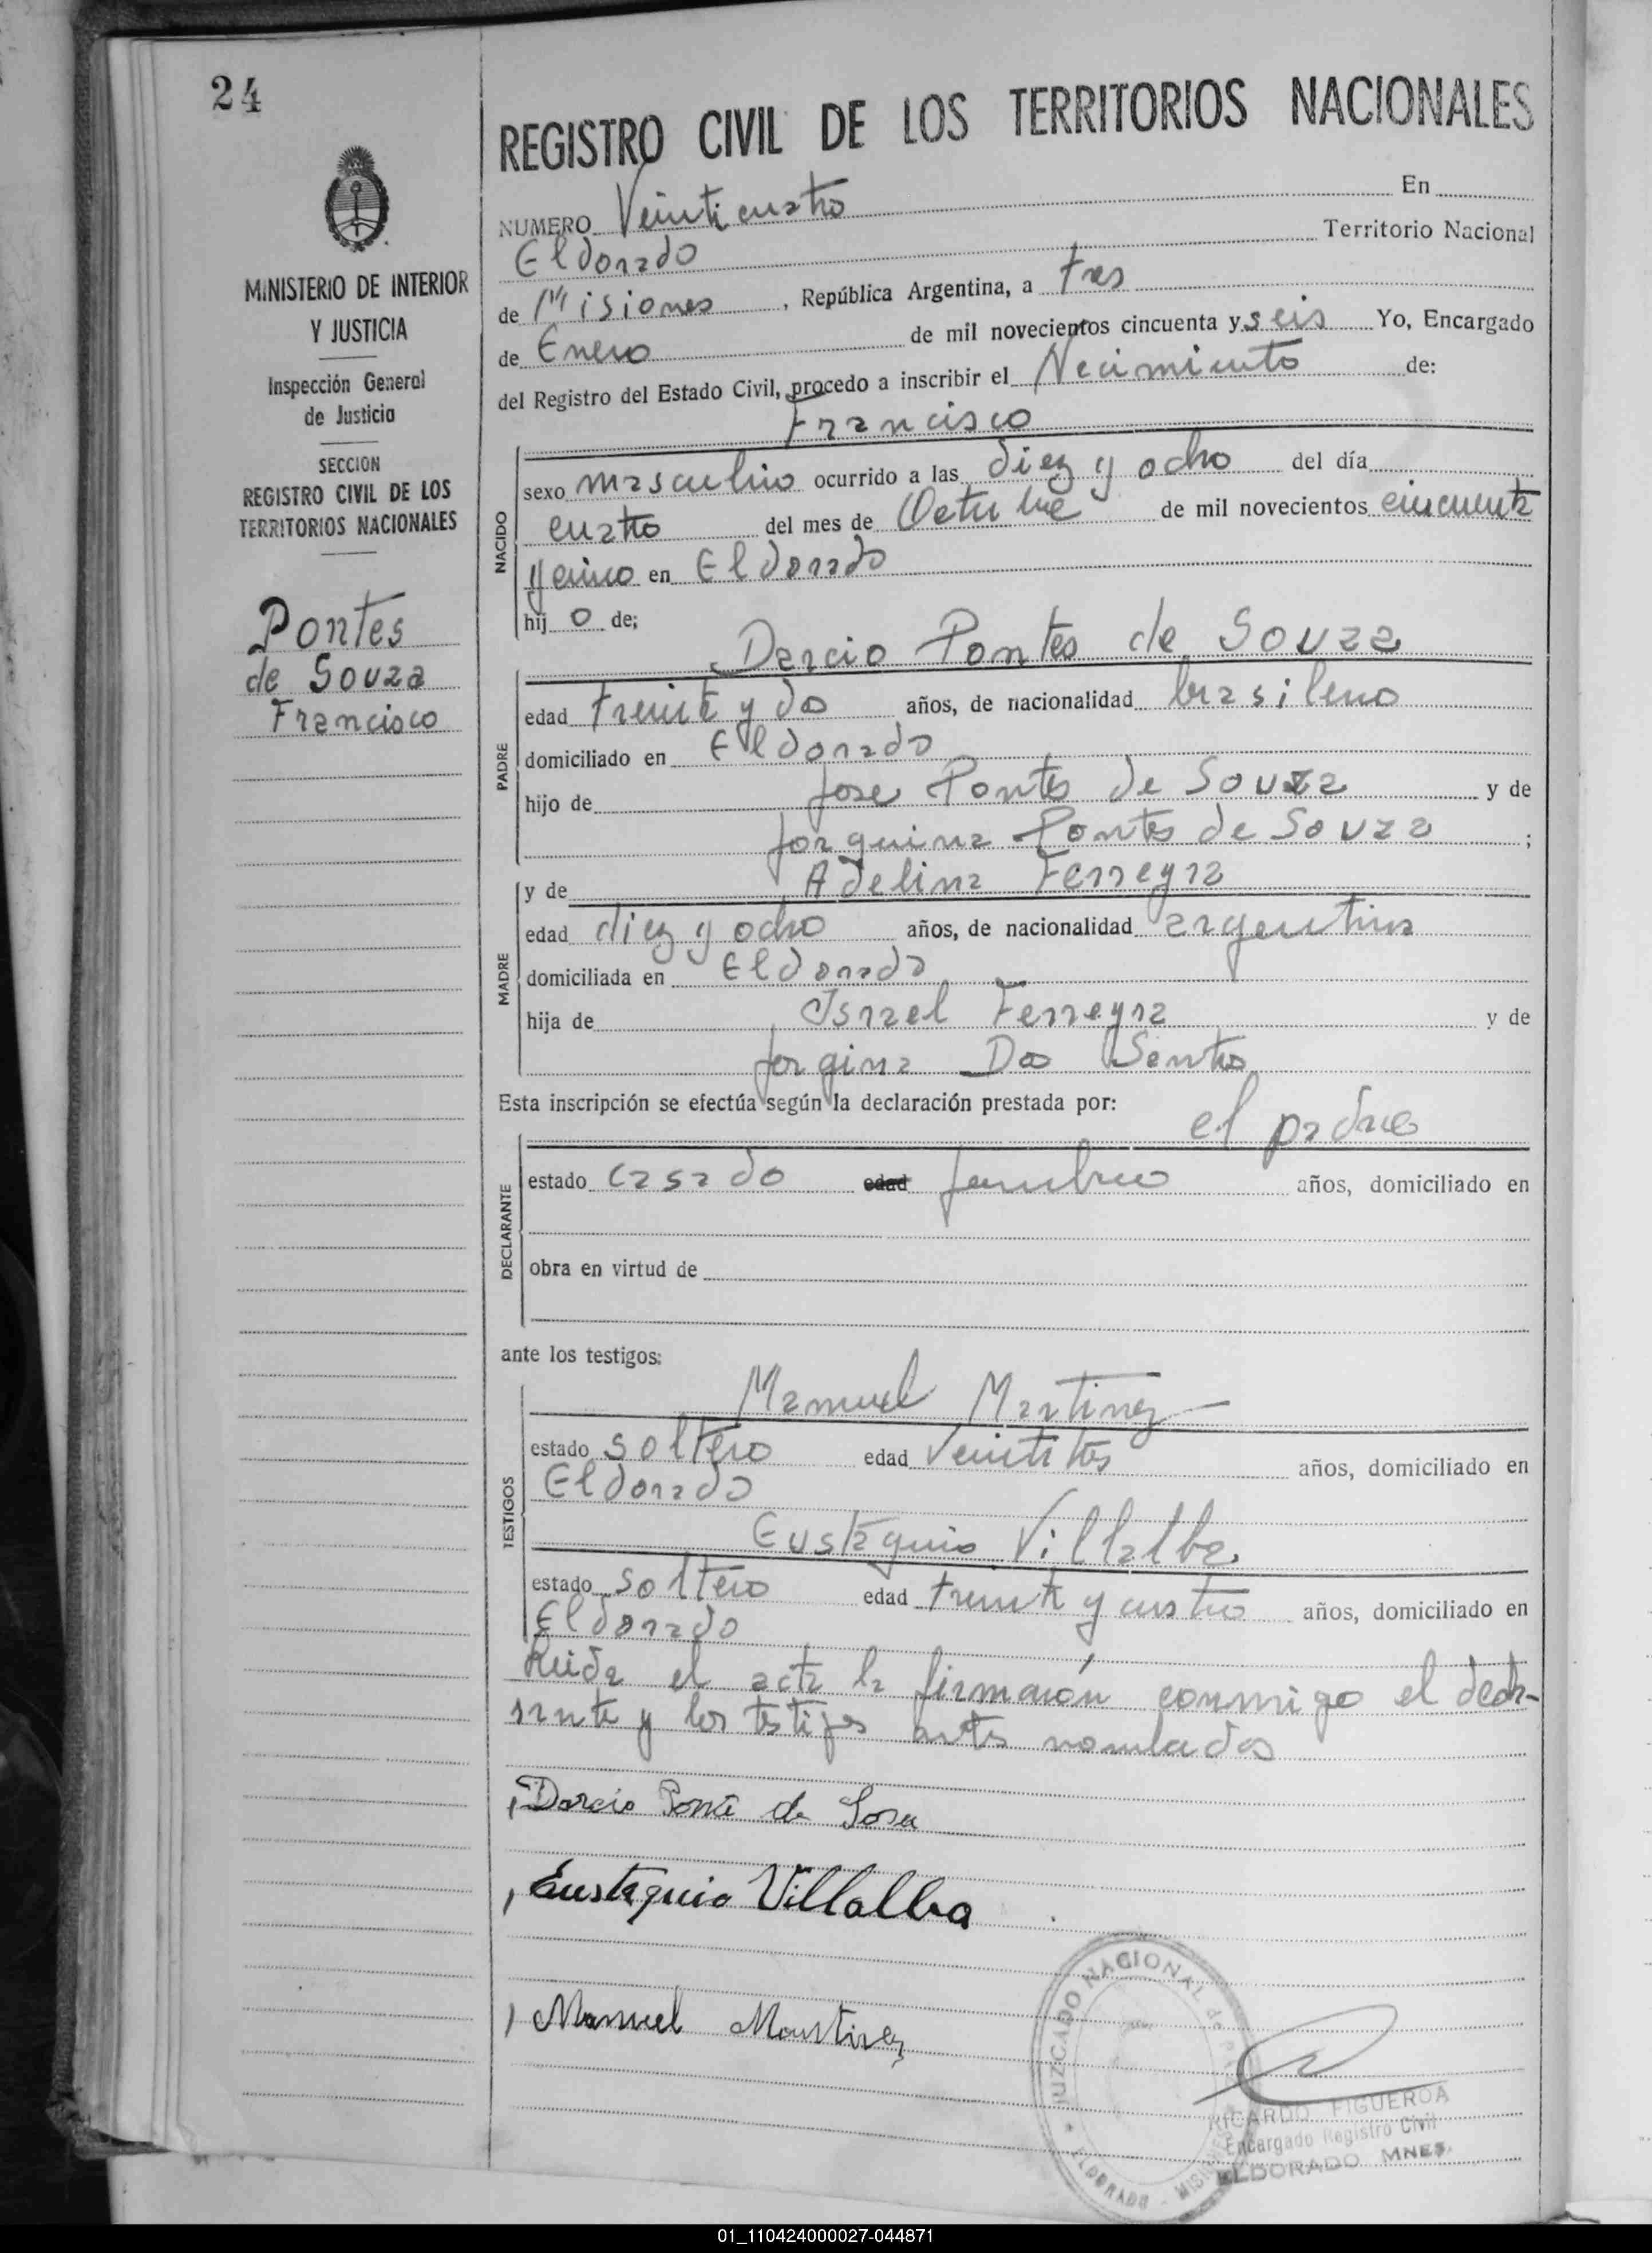 24
MINISTERIO DE INTERIOR
Y JUSTICIA
Inspección General
de Justicia
SECCION
REGISTRO CIVIL DE LOS
TERRITORIOS NACIONALES
Pontes
de Souza
Francisco
REGISTRO CIVIL DE LOS TERRITORIOS NACIONALES
NUMERO Veinticuatro En
Eldorado Territorio Nacional
de Misiones, República Argentina, a tres
de Enero de mil novecientos cincuenta y seis Yo, Encargado
del Registro del Estado Civil, procedo a inscribir el Nacimiento de:
Francisco
NACIDO
sexo masculino ocurrido a las diez y ocho del día
cuatro del mes de Octubre de mil novecientos cincuenta
y cinco en Eldorado
hij o de;
Darcio Pontes de Souza
PADRE
edad treinta y dos años, de nacionalidad brasileno
domiciliado en Eldorado
hijo de Jose Pontes de Souza y de
Joaquina Pontes de Souza ;
MADRE
y de Adelina Ferreyra
edad diez y ocho años, de nacionalidad argentina
domiciliada en Eldorado
hija de Israel Ferreyra y de
Jorgina Dos Santos
Esta inscripción se efectúa según la declaración prestada por:
el padre
DECLARANTE
estado casado edad años, domiciliado en
obra en virtud de
ante los testigos:
TESTIGOS
Manuel Martinez
estado soltero edad veintitres años, domiciliado en
Eldorado
Eustaquio Villalba
estado soltero edad treinta y cuatro años, domiciliado en
Eldorado
Leida el acta la firmaron conmigo el decla-
rante y los testigos antes nombrados
Darcio Ponte de Sosa
Eustaquio Villalba
Manuel Martinez
JUZGADO NACIONAL de
ELDORADO - MISIONES
RICARDO FIGUEROA
Encargado Registro Civil
ELDORADO MNES.
01_110424000027-044871